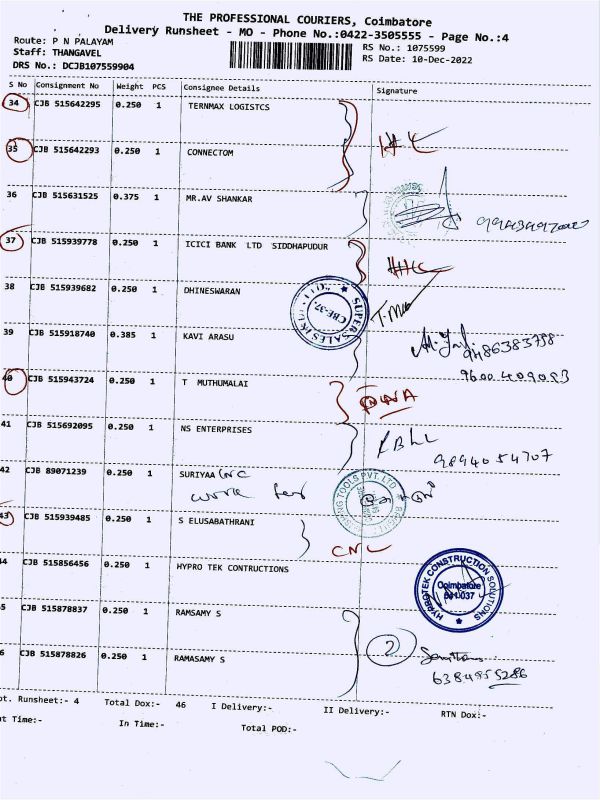 THE PROFESSIONAL COURIERS, Coimbatore
Delivery Runsheet - MO - Phone No.:0422-3505555 - Page No.:4
Route: P N PALAYAM
RS No.: 1075599
Staff: THANGAVEL
RS Date: 10-Dec-2022
DRS No.: DCJB107559904
S No Consignment No Weight PCS Consignee Details Signature
34 CJB 515642295 0.250 1 TERNMAX LOGISTCS
35 CJB 515642293 0.250 1 CONNECTOM
36 CJB 515631525 0.375 1 MR.AV SHANKAR
37 CJB 515939778 0.250 1 ICICI BANK LTD SIDDHAPUDUR
38 CJB 515939682 0.250 1 DHINESWARAN
SUPER SALES IN
CBE-37.
39 CJB 515918740 0.385 1 KAVI ARASU
9486383798
9600409093
40 CJB 515943724 0.250 1 T MUTHUMALAI
41 CJB 515692095 1 NS ENTERPRISES
9894054707
42 CJB 89071239 0.250 1 SURIYAA CNC
TOOLS PVT. LTD
43 CJB 515939485 0.250 1 S ELUSABATHRANI
44 CJB 515856456 0.250 1 HYPRO TEK CONTRUCTIONS
HYPROTEK CONSTRUCTION SOLUTIONS
Coimbatore
641 037
5 CJB 515878837 0.250 1 RAMSAMY S
2
6 CJB 515878826 0.250 1 RAMASAMY S
6384955286
pt. Runsheet:- 4 Total Dox:- 46 I Delivery:- II Delivery:- RTN Dox:-
t Time:- In Time:- Total POD:-